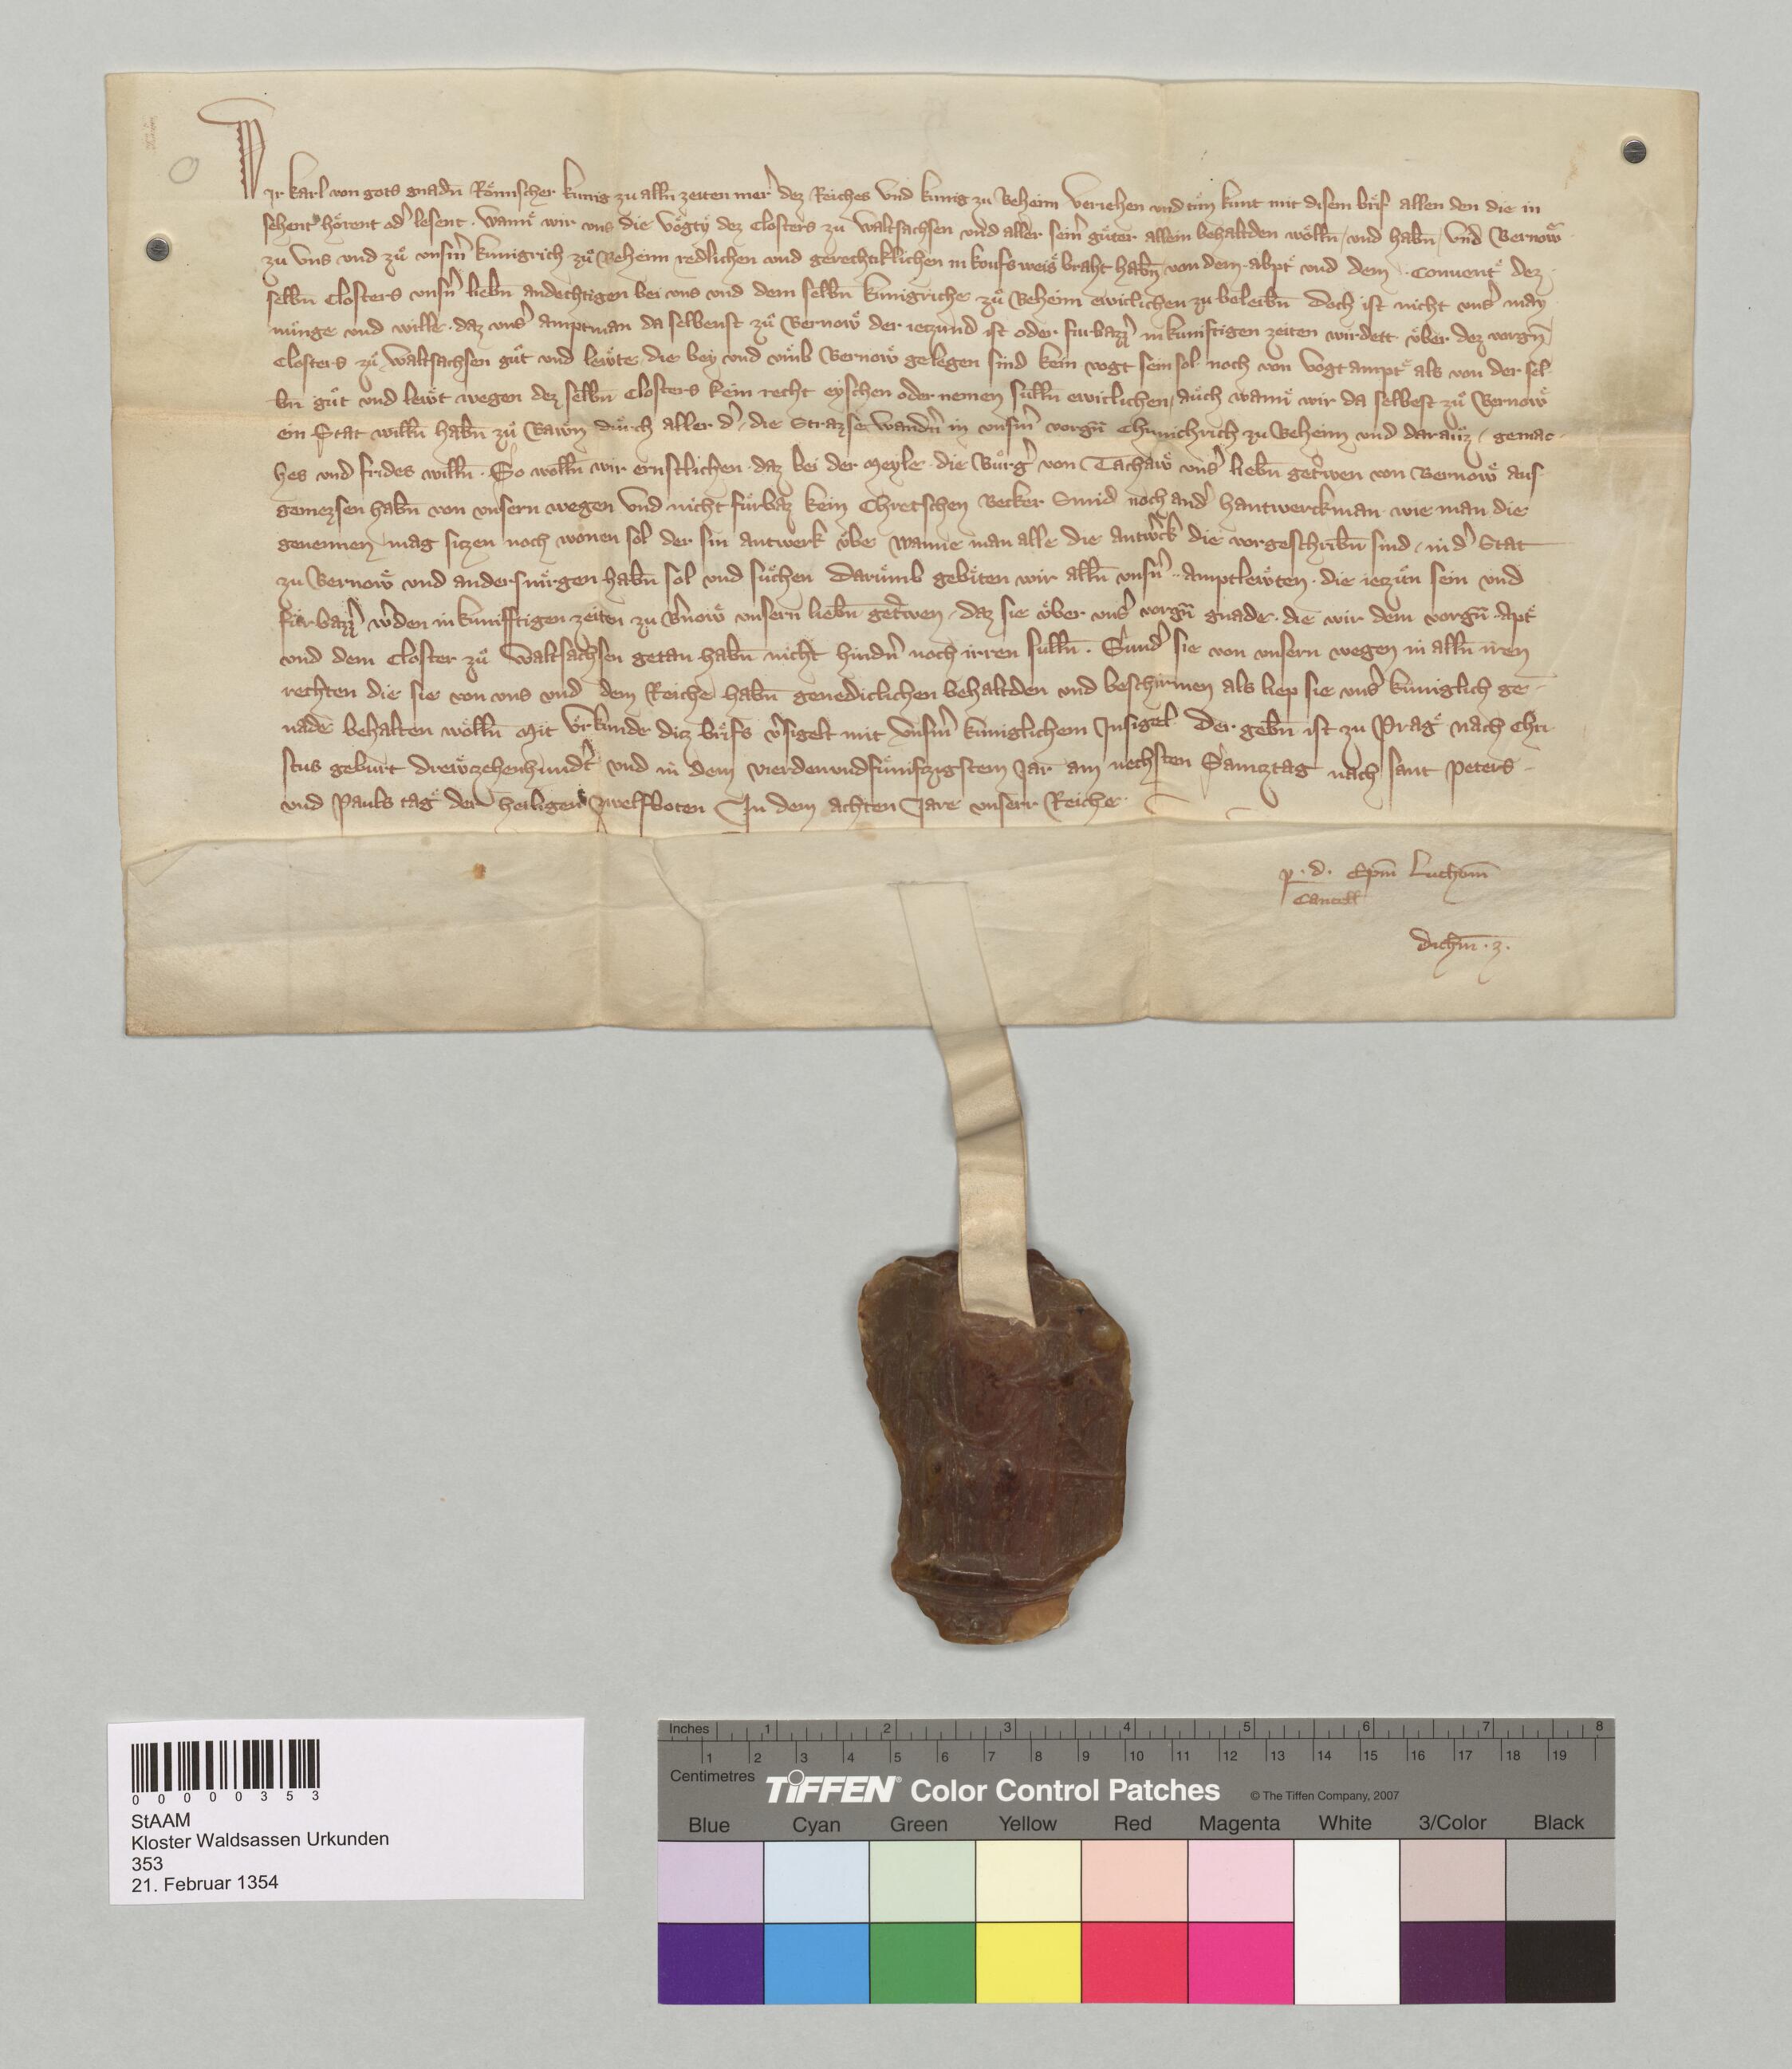 Wir karl von gots gnadn̄ Rômischer kunig zu alln̄ zeiten mer᷑ dez Reiches Vnd kunig zu Beheim veriehen vnd tůn kunt mit disem brif allen den die in
sehent hôrent od᷑ lesent · wann wir vns die vôgty dez Closters zu waltsachsen vnd aller sein᷑ gûter allein behaltden wôlln̄ / vnd habn̄ / vnd Bernow
zu vns vnd zů vnsm᷑ kunigrich zů Beheim redlichen vnd gerechtiklichen in koufs weis braht habn̄ von dem · abpt vnd dem · Conuent dez
selbn̄ Closters vnsn᷑ liebn̄ andechtigen bei vns vnd dem selbn̄ kunigriche zů Beheim ewiclichen zu beleibn̄ doch ist nicht vns᷑ may
nunge vnd wille · daz vns᷑ amptman da selbenst zů Bernow der ieczund ist oder furbazz᷑ in kunftigen zeiten wirdett vber dez vorgn̄
Closters zů waltsachsen gůt vnd lewte die bey vnd vmb Bernow gelegen sind kein vogt sein sol noch von vogt ampt als von der sel
bn̄ gůt vnd lewt wegen dez selbn̄ Closters kein recht eyschen oder nemen sulln̄ ewiclichen / auch wann wir da selbest zů Bernow
ein Stat willn̄ habn̄ zů Bawn durch aller d᷑ / die Strazse wandn᷑ in vnsm᷑ vorgn̄ Chunichrich zu Beheim vnd darauz / gemac
hes vnd frides willn̄ · So wolln̄ wir ernstlichen · daz bei der Meyle · die Burg᷑ von Tachaw vns᷑ liebn̄ get᷑wen von Bernow aus
gemezsen habn̄ von vnsern wegen vnd nicht fŭrbaz kein Chretschen Becker Smid noch and᷑ hantwerckman wie man die
genennen mag sizen noch wonen sol der sin antwerk vbe wanne man alle die antw᷑ck die vorgeschribn̄ sind / in d᷑ Stat
zu Bernow vnd anders nirgen habn̄ sol vnd sůchen Darumb gebiten wir alln̄ vnsn᷑ ·· amptlewten · die ieczun sein vnd
fŭrbazz᷑ w᷑den in kunfftigen zeiten zu B᷑now vnsern liebn̄ get᷑wen · daz sie vber vns᷑ vorgn̄ gnade · die wir dem vorgn̄ · Apt
vnd dem Closter zů Waltsachsen getan habn̄ nicht hindn᷑ noch irren sulln̄ · Sund᷑ sie von vnsern wegen in alln̄ iren
rechten die sie von vns vnd dem Reiche habn̄ genediclichen behaltden vnd beschirmen als liep sie vns᷑ kuniglich ge
nade behalten wolln̄ Mit Vrkunde dicz brifs v᷑sigelt mit Vnsm᷑ kuniglichem Insigel Der gebn̄ ist zu Prag nach Chri
stus geburt drewczehenhund᷑t vnd in dem vierdenvndfunfzigstem Jar am nechsten Samztag nach sant Peters
vnd Pauls tag der heiligen Zwelfboten In dem achten Jare vnserr Reiche
p · d · Epm̄ Luthom̄
Cancell
dichm̄ · z ·
0 0 0 0 0 3 5 3
StAAM
Kloster Waldsassen Urkunden
353
21. Februar 1354
Inches 1 2 3 4 5 6 7 8
1 2 3 4 5 6 7 8 9 10 11 12 13 14 15 16 17 18 19
Centimetres
TIFFEN® Color Control Patches © The Tiffen Company, 2007
Blue Cyan Green Yellow Red Magenta White 3/Color Black